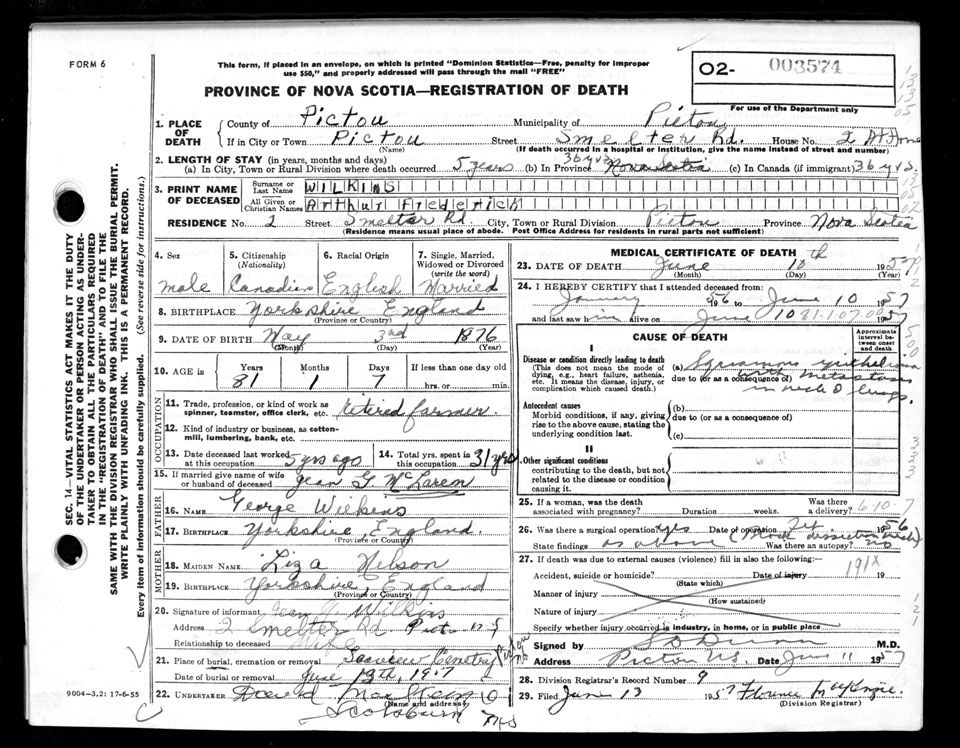 FORM 6
This form, if placed in an envelope, on which is printed "Dominion Statistics—Free, penalty for improper
use $50," and properly addressed will pass through the mail "FREE"
O2- 003574
For use of the Department only
PROVINCE OF NOVA SCOTIA—REGISTRATION OF DEATH
1. PLACE OF DEATH
County of Pictou Municipality of Pictou
If in City or Town Pictou Street Smelter Rd. House No. 2 At Home
(Name) (If death occurred in a hospital or institution, give the name instead of street and number)
2. LENGTH OF STAY (in years, months and days)
(a) In City, Town or Rural Division where death occurred 5 years (b) In Province 36 yrs Nova Scotia (c) In Canada (if immigrant) 36 yrs.
3. PRINT NAME OF DECEASED
Surname or Last Name WILKINS
All Given or Christian Names Arthur Frederick
RESIDENCE No. 2 Street Smelter Rd City, Town or Rural Division Pictou Province Nova Scotia
(Residence means usual place of abode. Post Office Address for residents in rural parts not sufficient)
4. Sex 5. Citizenship (Nationality) 6. Racial Origin 7. Single, Married, Widowed or Divorced (write the word)
male Canadian English Married
8. BIRTHPLACE Yorkshire England
(Province or Country)
9. DATE OF BIRTH May 3rd 1876
(Month) (Day) (Year)
10. AGE in Years Months Days If less than one day old
81 1 7 hrs. or min.
OCCUPATION
11. Trade, profession, or kind of work as spinner, teamster, office clerk, etc. retired farmer
12. Kind of industry or business, as cotton-mill, lumbering, bank, etc.
13. Date deceased last worked at this occupation 5 yrs ago 14. Total yrs. spent in this occupation 31 yrs
15. If married give name of wife or husband of deceased Jean G McLaren
FATHER
16. NAME George Wilkins
17. BIRTHPLACE Yorkshire England
(Province or Country)
MOTHER
18. MAIDEN NAME Liza Nelson
19. BIRTHPLACE Yorkshire England
(Province or Country)
20. Signature of informant Jean Wilkins
Address 2 Smelter Rd Pictou N S
Relationship to deceased Wife
21. Place of burial, cremation or removal Seaview Cemetery Pictou
Date of burial or removal June 13th, 1957
22. UNDERTAKER
(Name and address)
Scotsburn NS
MEDICAL CERTIFICATE OF DEATH
23. DATE OF DEATH June 10th 1957
(Month) (Day) (Year)
24. I HEREBY CERTIFY that I attended deceased from:
January 56 to June 10 1957
and last saw him alive on June 10 1957
81.107.00
CAUSE OF DEATH
Approximate interval between onset and death
I
Disease or condition directly leading to death
(This does not mean the mode of dying, e.g., heart failure, asthenia, etc. It means the disease, injury, or complication which caused death.)
(a) Squamous epithelioma
due to (or as a consequence of) with metastases
in neck & lungs.
Antecedent causes
Morbid conditions, if any, giving rise to the above cause, stating the underlying condition last.
(b)
due to (or as a consequence of)
(c)
II
Other significant conditions
contributing to the death, but not related to the disease or condition causing it.
25. If a woman, was the death associated with pregnancy? Duration weeks. Was there a delivery?
6-10-7
26. Was there a surgical operation? yes Date of operation 1956
State findings as above (Block dissection neck) Was there an autopsy? no
27. If death was due to external causes (violence) fill in also the following:
Accident, suicide or homicide? Date of injury 19
(State which) 191X
Manner of injury
(How sustained)
Nature of injury
Specify whether injury occurred in industry, in home, or in public place
Signed by S D Dunn M.D.
Address Pictou N.S. Date June 11 1957
28. Division Registrar's Record Number 9
29. Filed June 13 1957 Florence McKenzie.
(Division Registrar)
SEC. 14—VITAL STATISTICS ACT MAKES IT THE DUTY
OF THE UNDERTAKER OR PERSON ACTING AS UNDER-
TAKER TO OBTAIN ALL THE PARTICULARS REQUIRED
IN THE "REGISTRATION OF DEATH" AND TO FILE THE
SAME WITH THE DIVISION REGISTRAR WHO SHALL ISSUE THE BURIAL PERMIT.
WRITE PLAINLY WITH UNFADING INK. THIS IS A PERMANENT RECORD.
Every item of information should be carefully supplied. (See reverse side for instructions.)
9004-3.2: 17-6-55